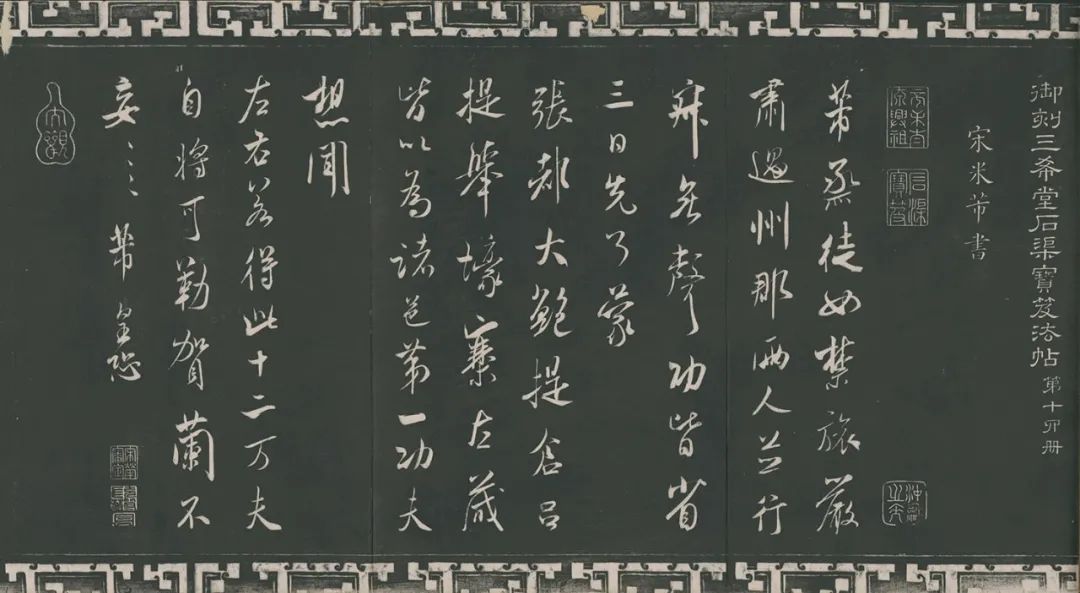 御刻三希堂石渠寶笈法帖 第十四冊
宋米芾書
芾篜徒如禁旅嚴
肅過州郡兩人並行
寂無聲功皆省
三日先了蒙
張都大鮑提倉呂
提舉壕寨左藏
皆以為諸邑第一功夫
想聞
左右若得此十二万夫
自將可勒賀蘭不
妄〻〻芾皇恐